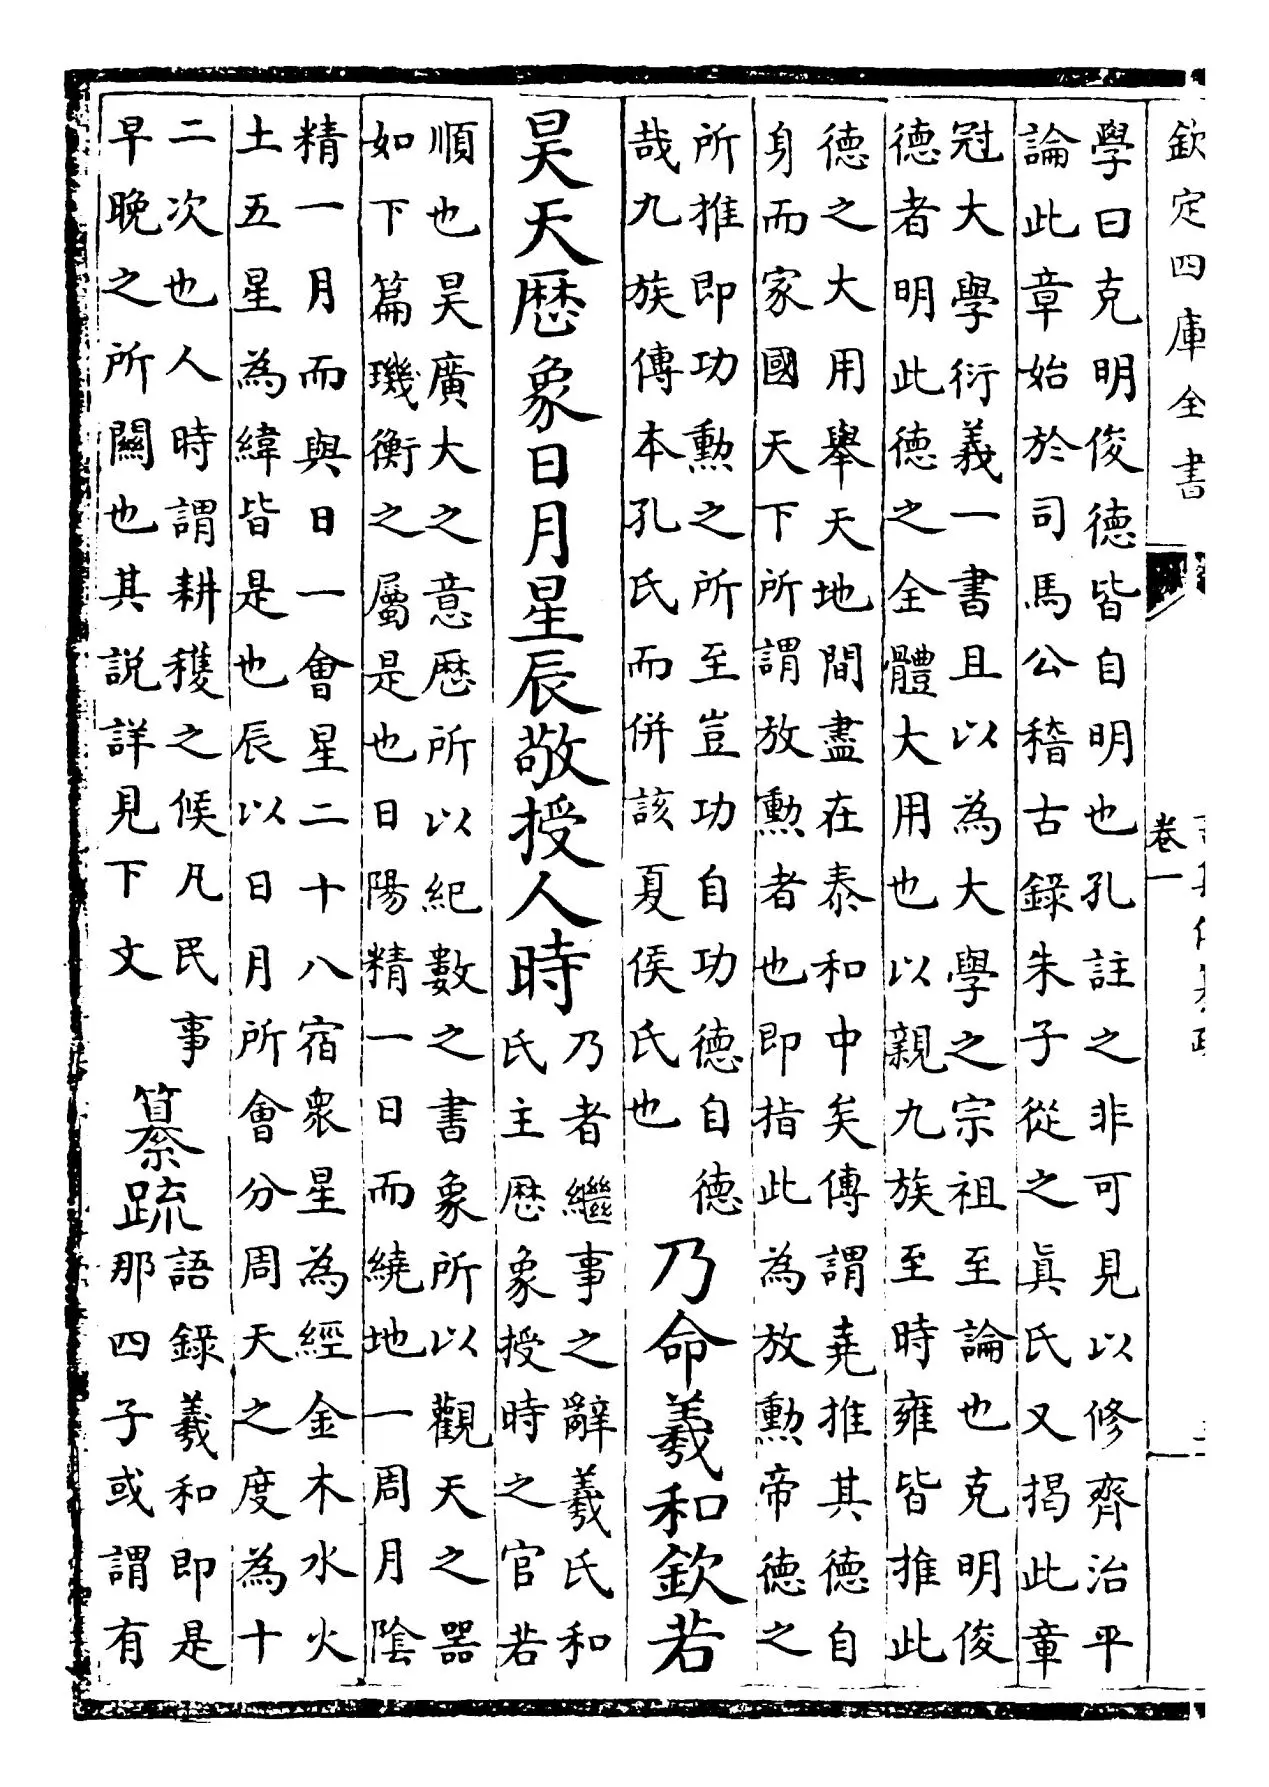 欽定四庫全書
卷一
學曰克明俊德皆自明也孔註之非可見以修齊治平
論此章始於司馬公稽古錄朱子從之眞氏又揭此章
冠大學衍義一書且以為大學之宗祖至論也克明俊
德者明此德之全體大用也以親九族至時雍皆推此
德之大用舉天地間盡在泰和中矣傳謂堯推其德自
身而家國天下所謂放勳者也即指此為放勳帝德之
所推即功勳之所至豈功自功德自德
哉九族傳本孔氏而併該夏侯氏也
乃命羲和欽若
昊天厯象日月星辰敬授人時
乃者繼事之辭羲氏和
氏主厯象授時之官若
順也昊廣大之意厯所以紀數之書象所以觀天之器
如下篇璣衡之屬是也日陽精一日而繞地一周月陰
精一月而與日一會星二十八宿衆星為經金木水火
土五星為緯皆是也辰以日月所會分周天之度為十
二次也人時謂耕穫之候凡民事
早晚之所關也其説詳見下文
纂疏
語錄羲和即是
那四子或謂有